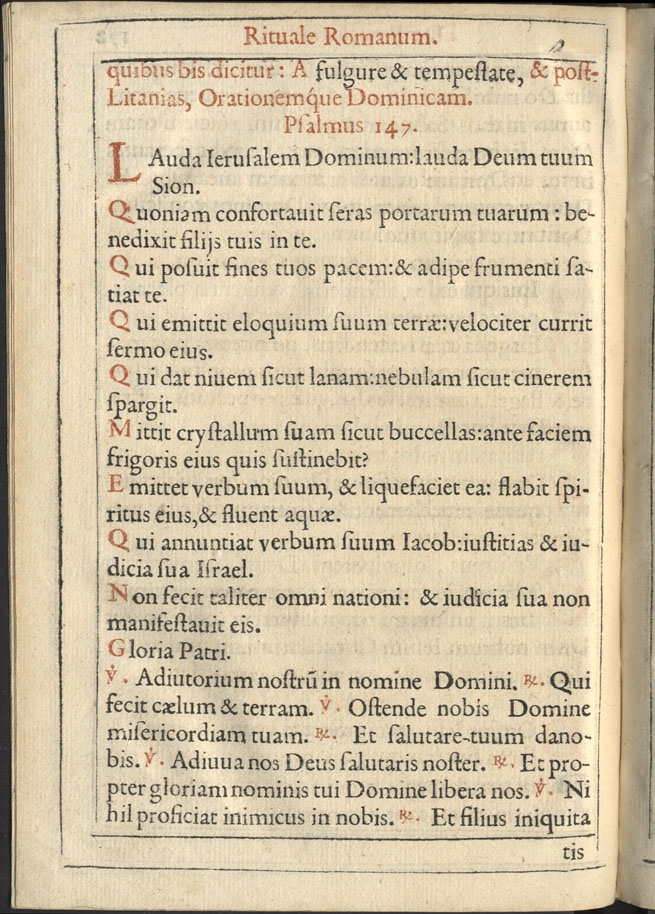 Rituale Romanum.
quibus bis dicitur: A fulgure & tempeſtate, & poſt-
Litanias, Orationemq́ue Dominicam.
Pſalmus 147.
LAuda Ieruſalem Dominum:lauda Deum tuum
Sion.
Quoniam confortauit ſeras portarum tuarum : be-
nedixit filijs tuis in te.
Qui poſuit fines tuos pacem:& adipe frumenti ſa-
tiat te.
Qui emittit eloquium ſuum terræ:velociter currit
ſermo eius.
Qui dat niuem ſicut lanam:nebulam ſicut cinerem
ſpargit.
Mittit cryſtallum ſuam ſicut buccellas:ante faciem
frigoris eius quis ſuſtinebit?
Emittet verbum ſuum, & liquefaciet ea: flabit ſpi-
ritus eius,& fluent aquæ.
Qui annuntiat verbum ſuum Iacob:iuſtitias & iu-
dicia ſua Iſrael.
Non fecit taliter omni nationi: & iudicia ſua non
manifeſtauit eis.
Gloria Patri.
℣. Adiutorium noſtrũ in nomine Domini. ℟. Qui
fecit cælum & terram. ℣. Oſtende nobis Domine
miſericordiam tuam. ℟. Et ſalutare-tuum dano-
bis. ℣. Adiuua nos Deus ſalutaris noſter. ℟. Et pro-
pter gloriam nominis tui Domine libera nos. ℣. Ni
hil proficiat inimicus in nobis. ℟. Et filius iniquita
tis